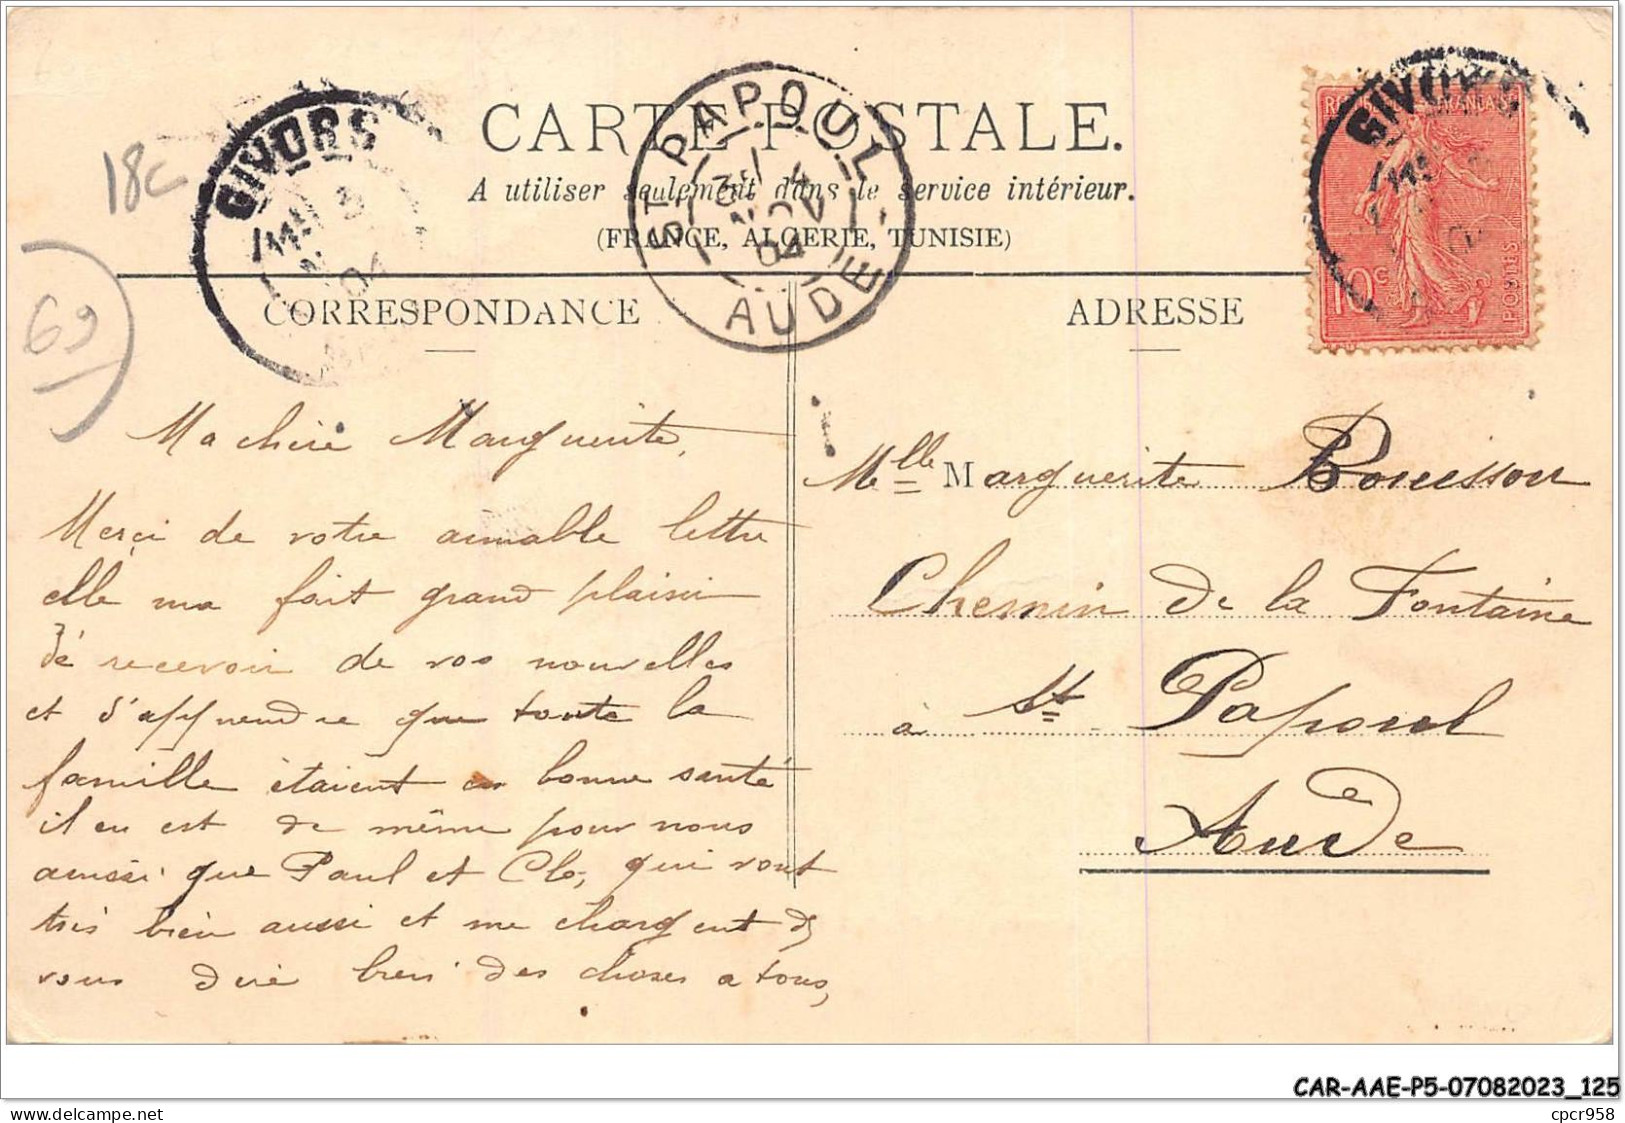 CARTE POSTALE.
A utiliser seulement dans le service intérieur.
(FRANCE, ALGERIE, TUNISIE)
GIVORS
04
ST PAPOUL
NOV
04
AUDE
GIVORS
10c
POSTES
18c
69
CORRESPONDANCE
Ma chère Marguerite,
Merçi de votre aimable lettre
elle ma fait grand plaisir
de recevoir de vos nouvelles
et d'apprendre que toute la
famille étaient en bonne santé
il en est de même pour nous
aussi que Paul et Clo, qui vont
très bien aussi et me chargent de
vous dire bien des choses a tous,
ADRESSE
Melle Marguerite Bouisson
Chemin de la Fontaine
à St Papoul
Aude
CAR-AAE-P5-07082023_125
cpcr958